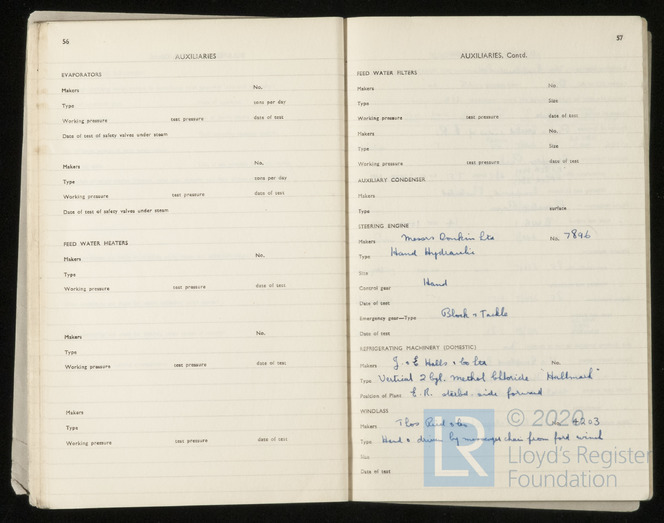 56
AUXILIARIES
EVAPORATORS
Makers No.
Type tons per day
Working pressure test pressure date of test
Date of test of safety valves under steam
Makers No.
Type tons per day
Working pressure test pressure date of test
Date of test of safety valves under steam
FEED WATER HEATERS
Makers No.
Type
Working pressure test pressure date of test
Makers No.
Type
Working pressure test pressure date of test
Makers
Type
Working pressure test pressure date of test
57
AUXILIARIES, Contd.
FEED WATER FILTERS
Makers No.
Type Size
Working pressure test pressure date of test
Makers No.
Type Size
Working pressure test pressure date of test
AUXILIARY CONDENSER
Makers
Type surface
STEERING ENGINE
Makers Messrs Donkin Ltd No. 7896
Type Hand Hydraulic
Size
Control gear Hand
Date of test
Emergency gear—Type Block & Tackle
Date of test
REFRIGERATING MACHINERY (DOMESTIC)
Makers J. & E. Halls & Co Ltd No.
Type Vertical 2 Cyl. Methyl Chloride "Hallmark"
Position of Plant E.R. starbd. side forward
WINDLASS
Makers Thos Reid & No. 4203
Type Hand & driven by messenger chain from ford winch
Size
Date of test
LR
© 2020
Lloyd's Register
Foundation